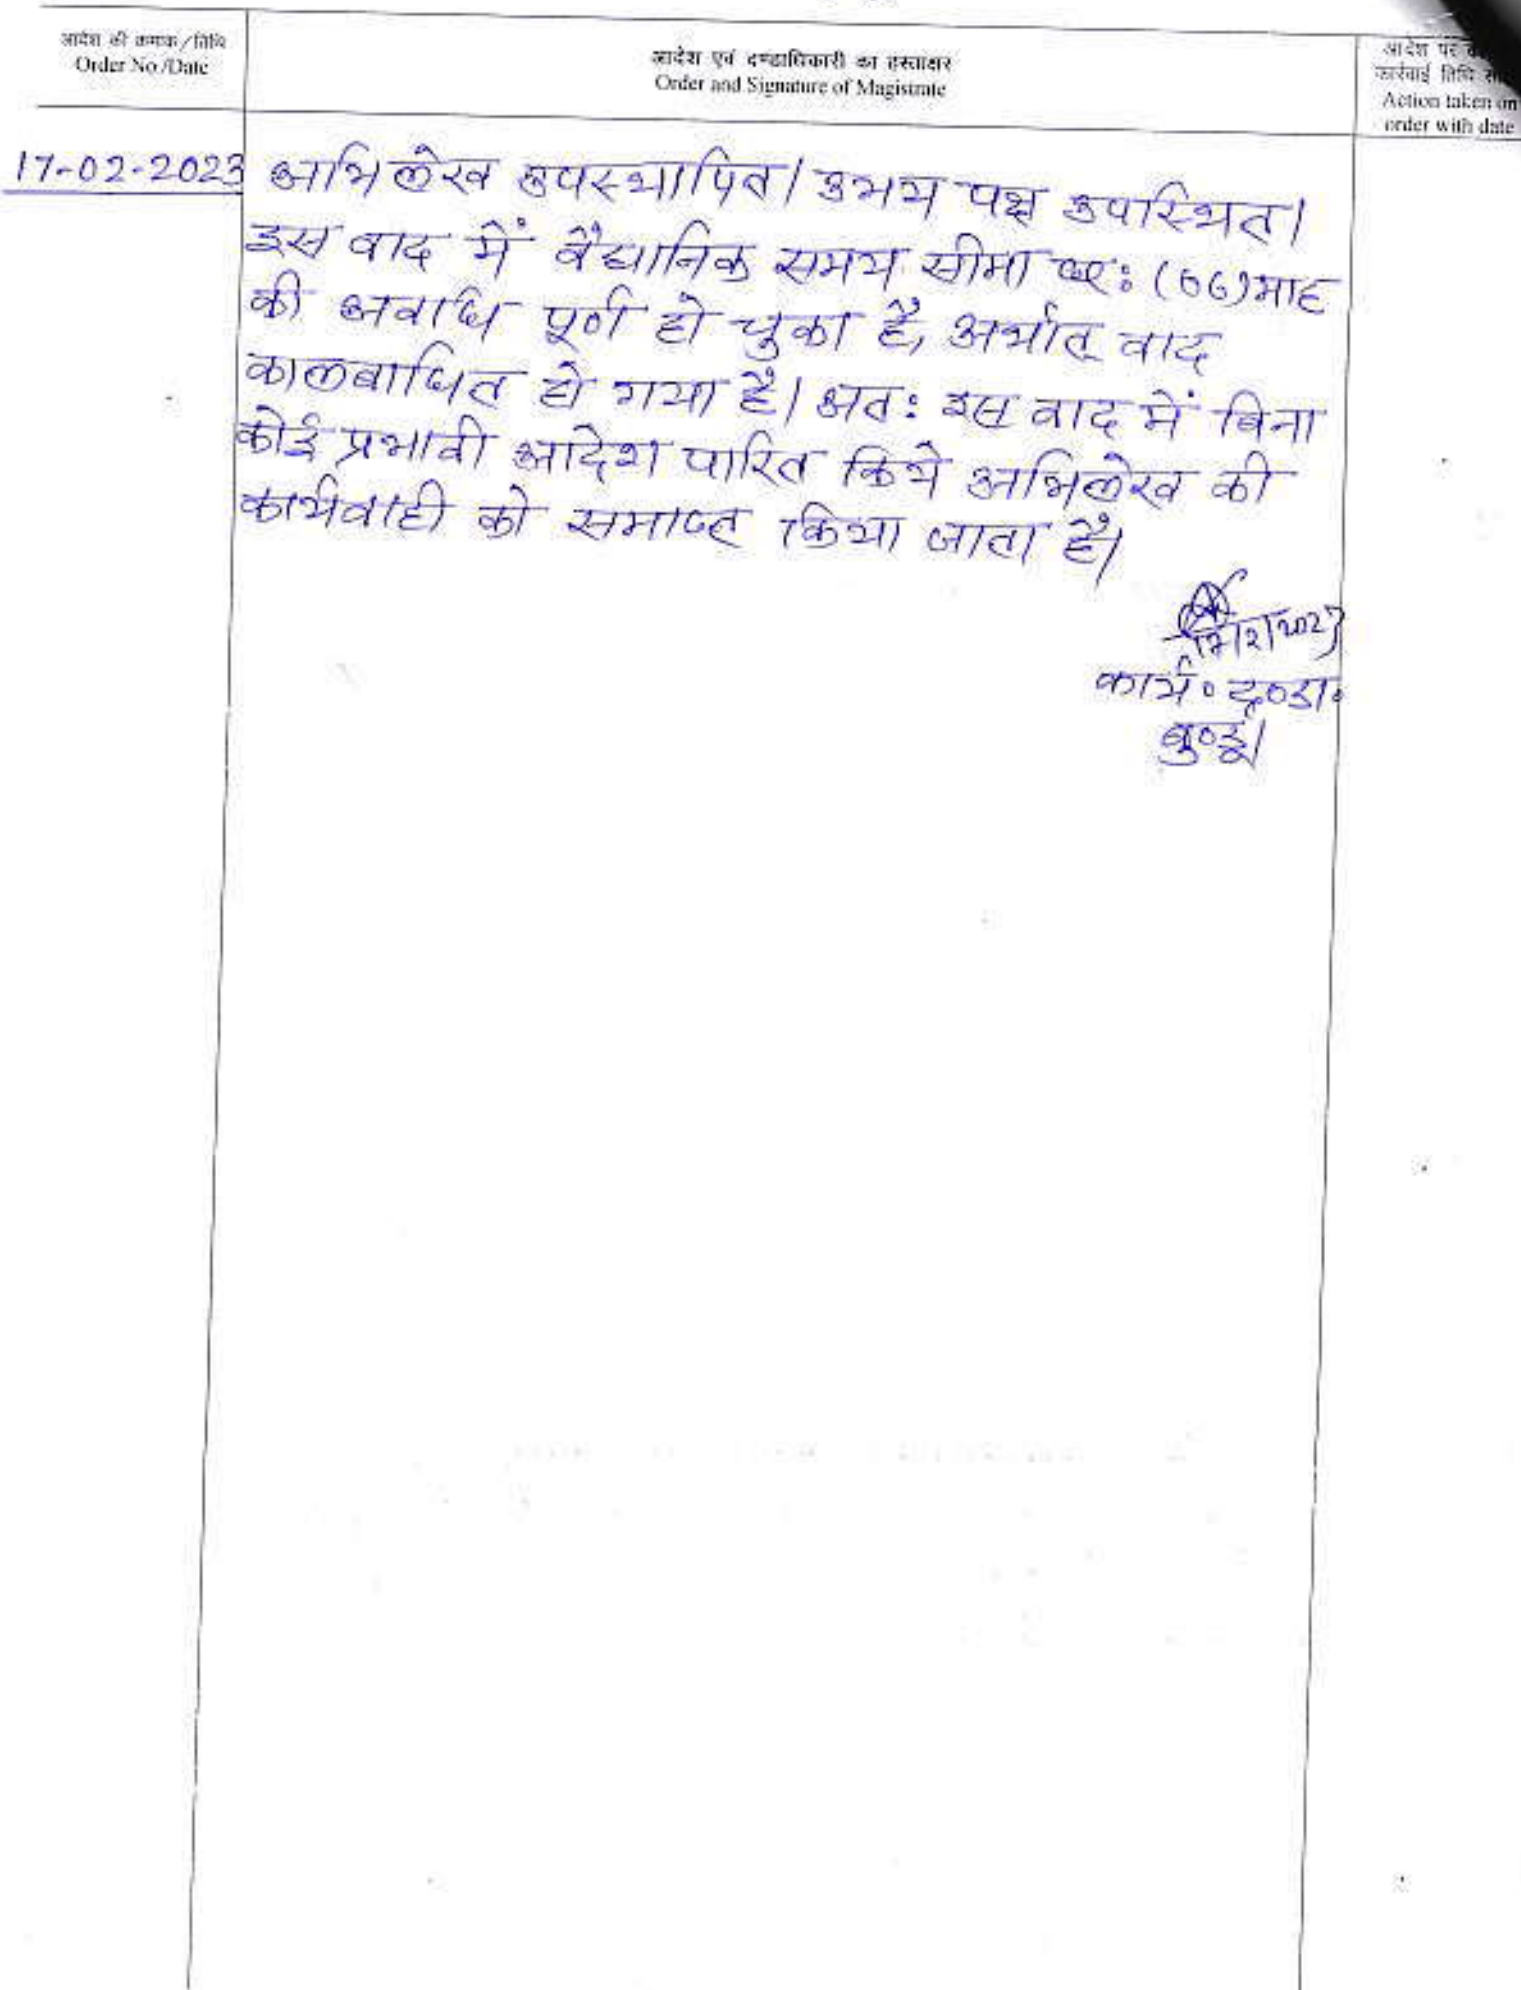 आदेश की क्रमांक/तिथि
Order No./Date
आदेश एवं दण्डाधिकारी का हस्ताक्षर
Order and Signature of Magistrate
आदेश पर
कार्रवाई तिथि
Action taken on
order with date
17-02-2023
अभिलेख उपस्थापित। उभय पक्ष उपस्थित।
इस वाद में वैधानिक समय सीमा छः (06) माह
की अवधि पूर्ण हो चुका है, अर्थात् वाद
कालबाधित हो गया है। अतः इस वाद में बिना
कोई प्रभावी आदेश पारित किये अभिलेख की
कार्यवाही को समाप्त किया जाता है।
17/2/2023
कार्य० दण्डा०
बुण्डू।